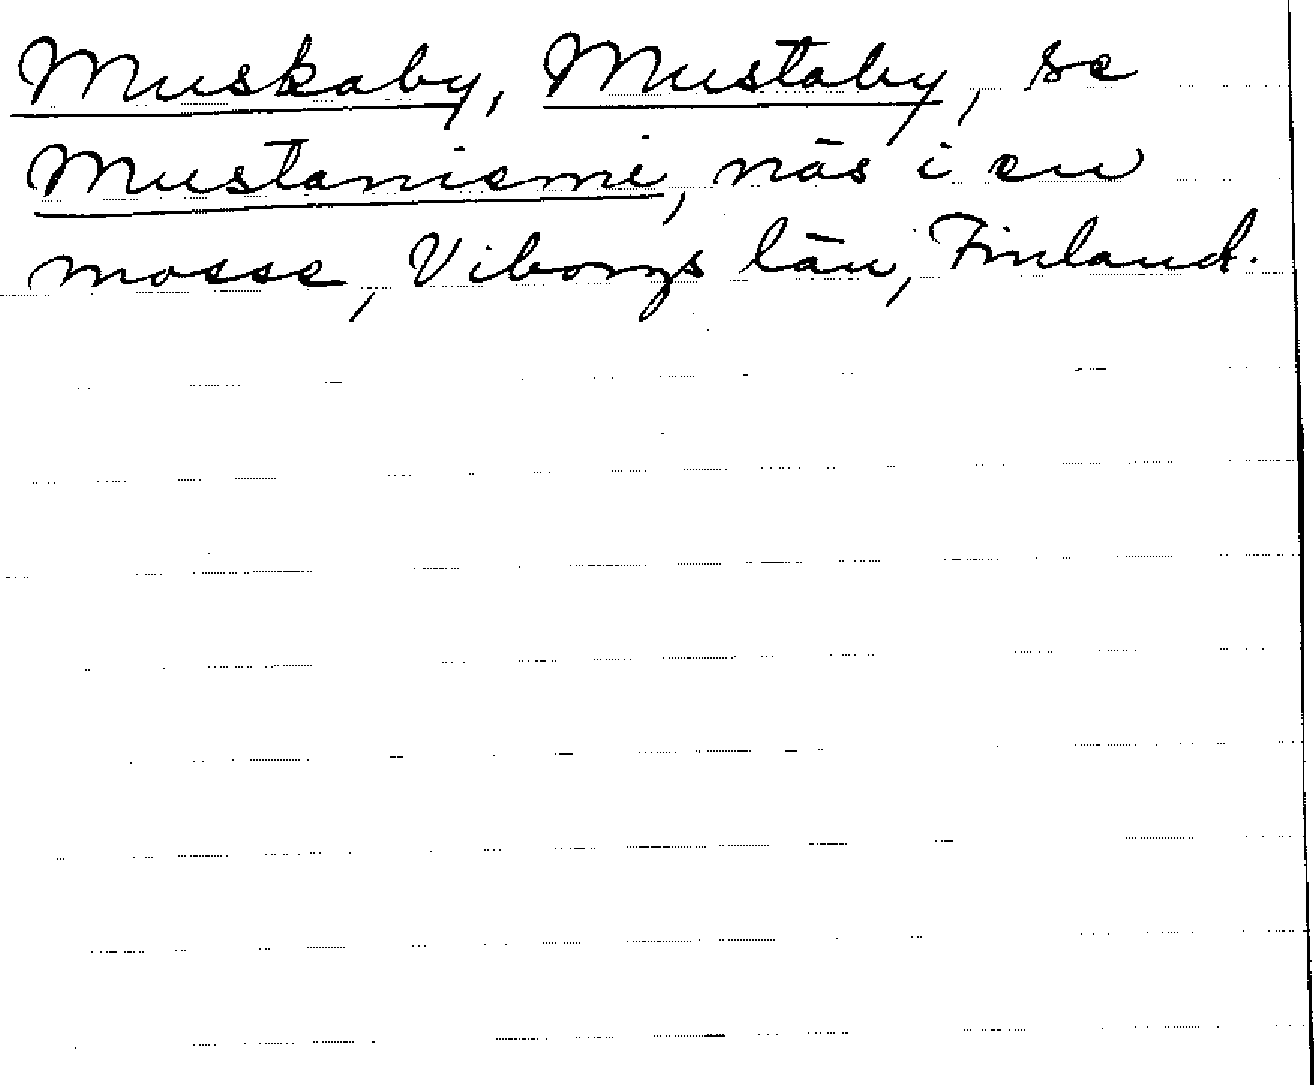 Muskaby, Mustaby, se
Mustaniemi, näs i en
mosse, Viborgs län, Finland.